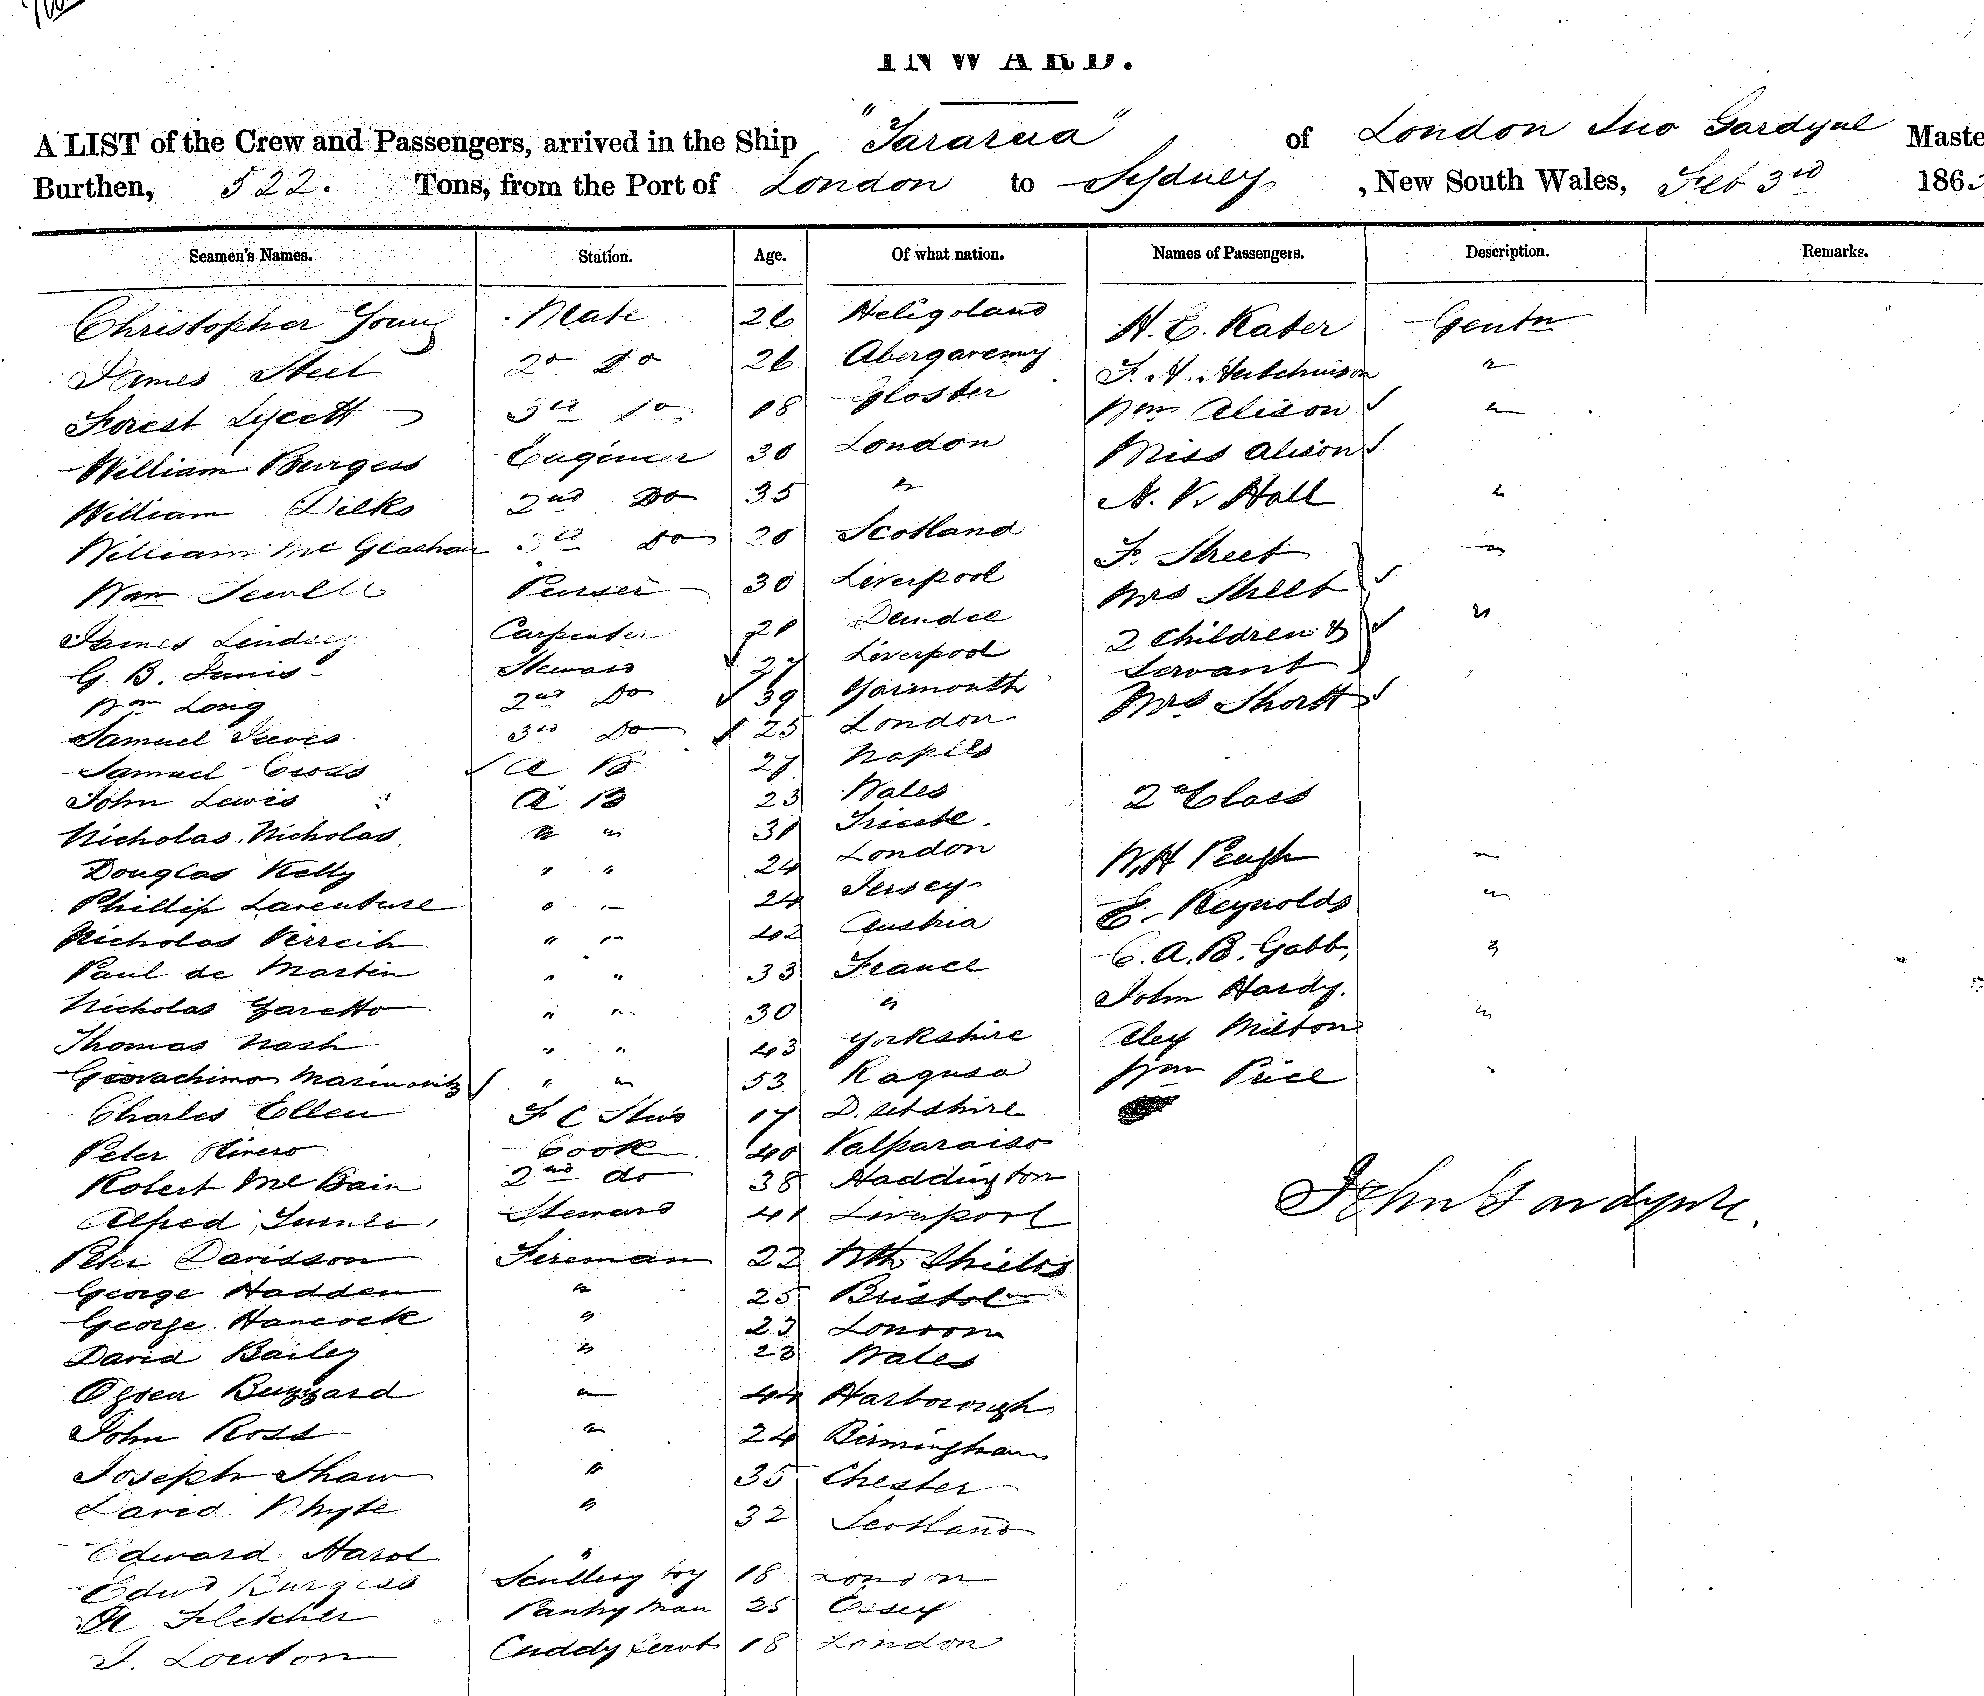 INWARD.
A LIST of the Crew and Passengers, arrived in the Ship "Tararua" of London Jno Gardyne Maste
Burthen, 522. Tons, from the Port of London to Sydney, New South Wales, Feb 3rd 186
Seamen's Names. Station. Age. Of what nation. Names of Passengers. Description. Remarks.
Christopher Young Mate 26 Heligoland H. E. Kater Gentn
James Steel 2nd Do 26 Abergavenny F. H. Hutchinson "
Forest Lycett 3rd Do 18 Gloster Wm Alison ✓ "
William Burgess Engineer 30 London Miss Alison ✓
William Dilks 2nd Do 35 " N. V. Hall "
William McGlashan 3rd Do 20 Scotland F. Street "
Wm Sewell Purser 30 Liverpool Mrs Street ✓
James Lindsey Carpenter 21 Dundee 2 Children & ✓ "
G. B. Steward 27 Liverpool Servant
Wm Long 2nd Do 39 Yarmouth Mrs Shortt ✓
Samuel Jeeves 3rd Do 25 London
Samuel Cross ✓ A B 27 Naples
John Lewis A B 23 Wales 2nd Class
Nicholas Nicholas " " 31 Trieste
Douglas Kelly " " 24 London W. H. Peagh "
Phillip Larenture " " 24 Jersey E. Reynolds "
Nicholas Verreih " " 42 Austria C. A. B. Gabb, "
Paul de Martin " " 33 France John Hardy.
Nicholas Garetto " " 30 " Alex Milton "
Thomas Nash " " 43 Yorkshire Wm Price "
Giovachimo Marinovitz ✓ " " 53 Ragusa
Charles Ellen F C Stws 17 D.setshire
Peter Rivero Cook 40 Valparaiso
Robert McBain 2nd do 38 Haddington
Alfred Steward 41 Liverpool
John Gardyne
Peter Davidson Fireman 22 Nth Shields
George Hadden " 25 Bristol
George Hancock " 23 London
David Bailey " 23 Wales
Buzzard " 44 Harborough
John Ross " 24 Birmingham
Joseph Shaw " 35 Chester
David Whyte " 32 Scotland
Edward Harol "
Edwd Burgess Scullery boy 18 London
A Fletcher Pantry Man 25 Essex
J. Lowton Cuddy Servt 18 London